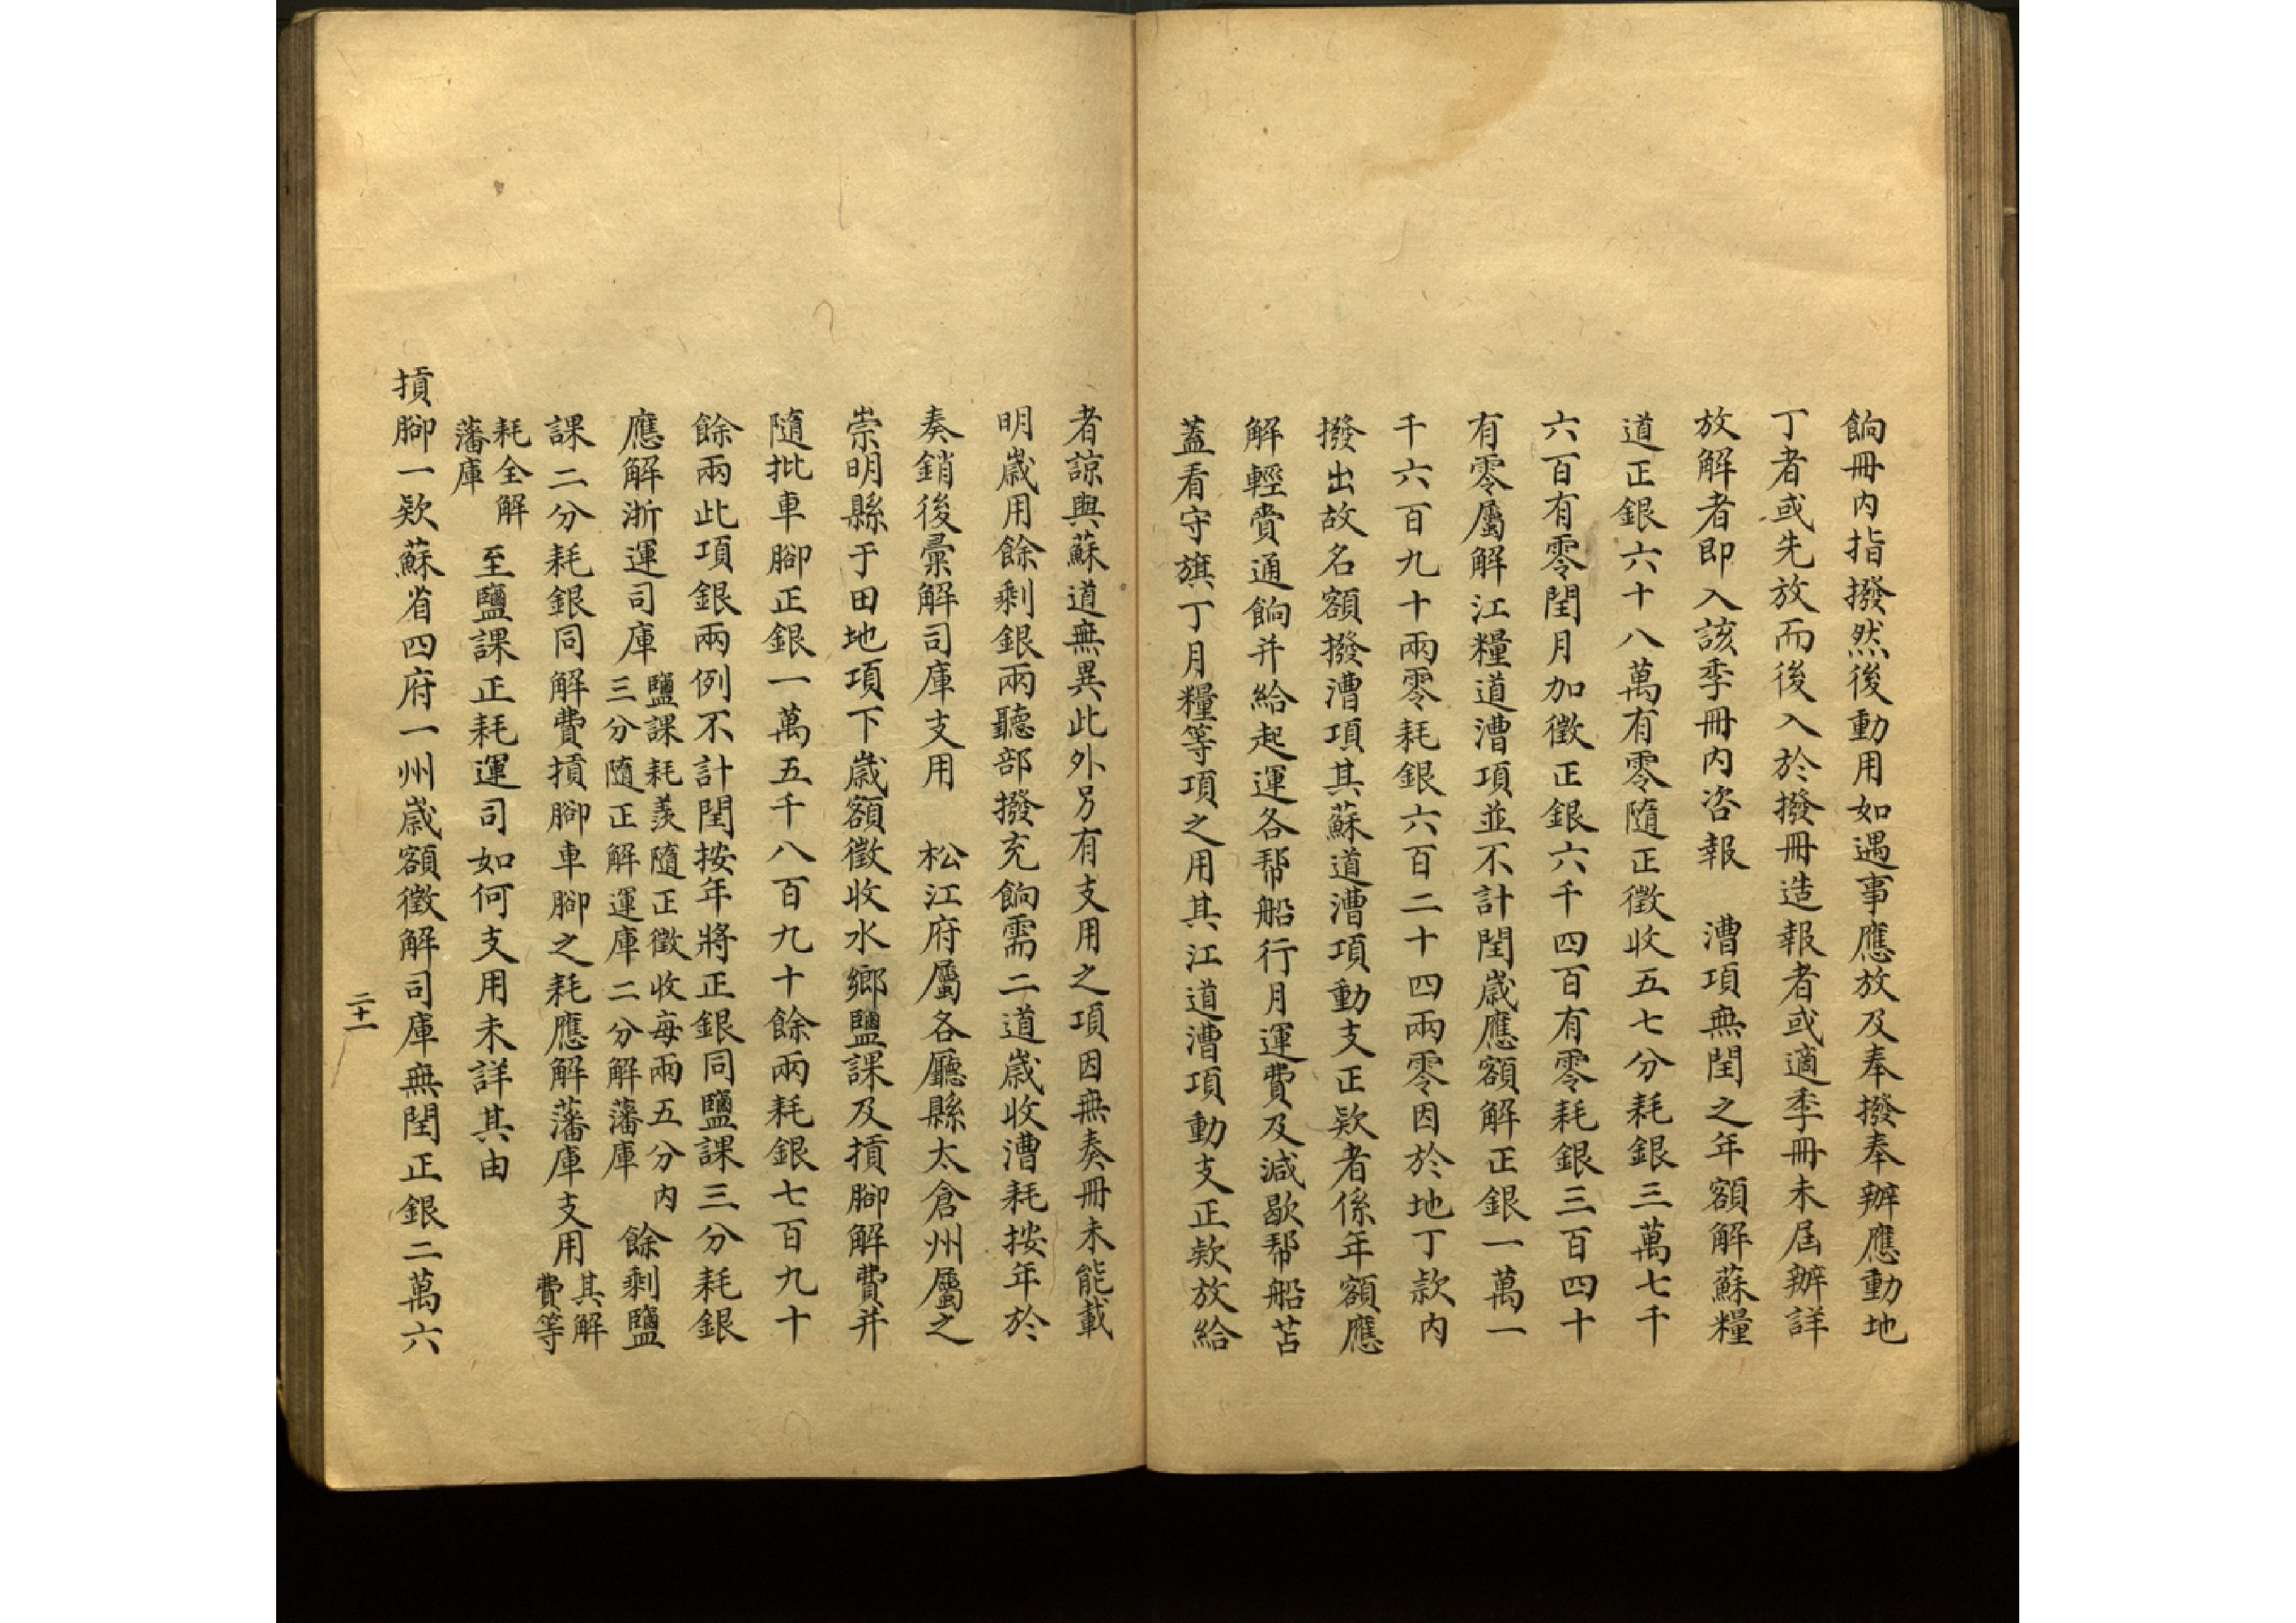 餉冊內指撥然後動用如遇事應放及奉撥奉辦應動地
丁者或先放而後入於撥冊造報者或適季冊未屆辦詳
放解者即入該季冊內咨報　漕項無閏之年額解蘇糧
道正銀六十八萬有零隨正徵收五七分耗銀三萬七千
六百有零閏月加徵正銀六千四百有零耗銀三百四十
有零屬解江糧道漕項並不計閏歲應額解正銀一萬一
千六百九十兩零耗銀六百二十四兩零因於地丁款內
撥出故名額撥漕項其蘇道漕項動支正欵者係年額應
解輕賫通餉并給起運各帮船行月運費及減歇帮船苫
蓋看守旗丁月糧等項之用其江道漕項動支正欵放給
者諒與蘇道無異此外另有支用之項因無奏冊未能載
明歲用餘剩銀兩聽部撥充餉需二道歲收漕耗按年於
奏銷後彙解司庫支用　松江府屬各廳縣太倉州屬之
崇明縣于田地項下歲額徵收水鄉鹽課及損腳解費并
隨批車腳正銀一萬五千八百九十餘兩耗銀七百九十
餘兩此項銀兩例不計閏按年將正銀同鹽課三分耗銀
應解浙運司庫鹽課耗羨隨正徵收每兩五分內三分隨正解運庫二分解藩庫餘剩鹽
課二分耗銀同解費損腳車腳之耗應解藩庫支用其解費等
耗全解藩庫至鹽課正耗運司如何支用未詳其由
損腳一欵蘇省四府一州歲額徵解司庫無閏正銀二萬六
二十一